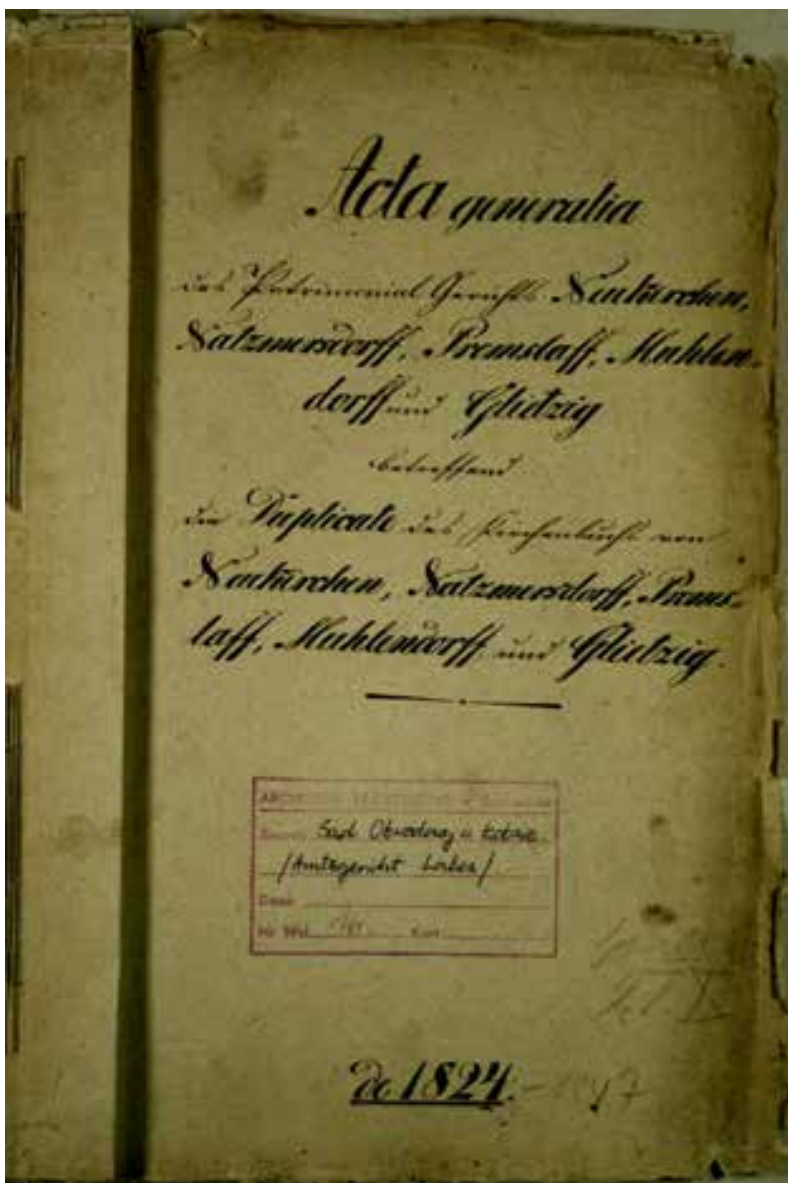 Acta generalia
des Patrimonial Gerichts Neukirchen,
Natzmersdorff, Premslaff, Muhlen-
dorff und Glietzig
betreffend
die Duplicate des Kirchenbuchs von
Neukirchen, Natzmersdorff, Prems-
laff, Muhlendorff und Glietzig.
Sąd Obwodowy w Łobzie
/Amtsgericht Labes/
de 1824.